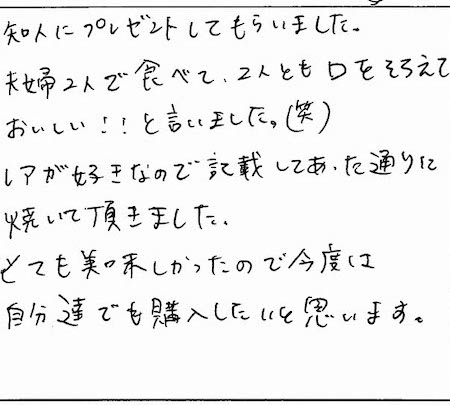 知人にプレゼントしてもらいました。
夫婦2人で食べて、2人とも口をそろえて
おいしい!!と言いました。(笑)
レアが好きなので記載してあった通りに
焼いて頂きました。
とても美味しかったので今度は
自分達でも購入したいと思います。